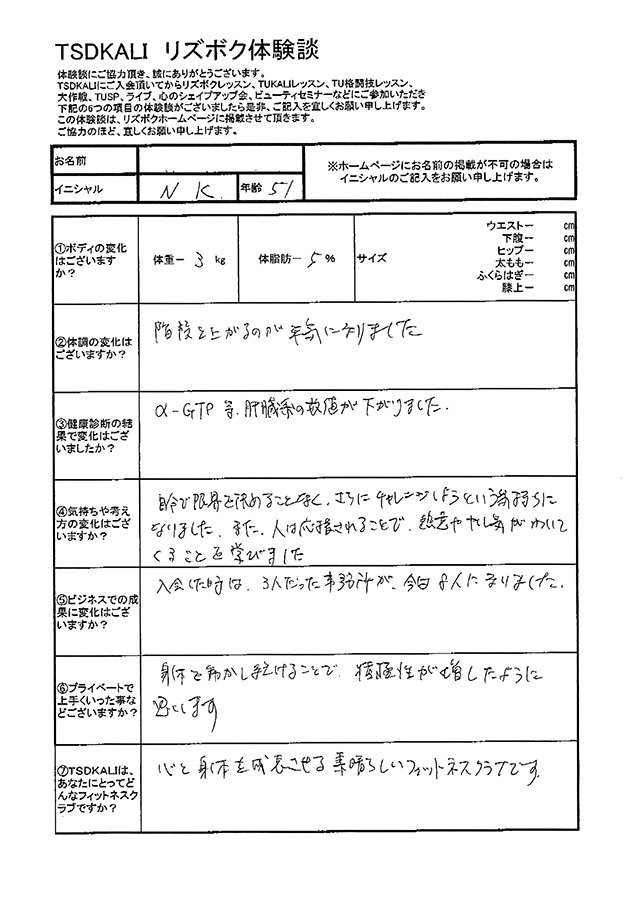 TSDKALI リズボク体験談
体験談にご協力頂き、誠にありがとうございます。
TSDKALIにご入会頂いてからリズボクレッスン、TUKALIレッスン、TU格闘技レッスン、
大作戦、TUSP、ライブ、心のシェイプアップ会、ビューティセミナーなどにご参加いただき
下記の6つの項目の体験談がございましたら是非、ご記入を宜しくお願い申し上げます。
この体験談は、リズボクホームページに掲載させて頂きます。
ご協力のほど、宜しくお願い申し上げます。
お名前
※ホームページにお名前の掲載が不可の場合は
イニシャルのご記入をお願い申し上げます。
イニシャル N K. 年齢 51
①ボディの変化
はございます
か?
体重ー 3 kg
体脂肪ー 5 %
サイズ
ウエストー cm
下腹ー cm
ヒップー cm
太ももー cm
ふくらはぎー cm
膝上ー cm
②体調の変化は
ございますか?
階段を上がるのが平気になりました
③健康診断の結
果で変化はござ
いましたか?
α-GTP等、肝臓系の数値が下がりました.
④気持ちや考え
方の変化はござ
いますか?
自分で限界を決めることなく、さらにチャレンジしようという気持ちに
なりました。また、人は応援されることで、熱意ややる気がわいて
くることを学びました
⑤ビジネスでの成
果に変化はござ
いますか?
入会した時は、3人だった事務所が、今は8人になりました.
⑥プライベートで
上手くいった事な
どございますか?
身体を動かし続けることで、積極性が増したように
思います
⑦TSDKALIは、
あなたにとってど
んなフィットネスク
ラブですか?
心と身体を成長させる素晴らしいフィットネスクラブです.